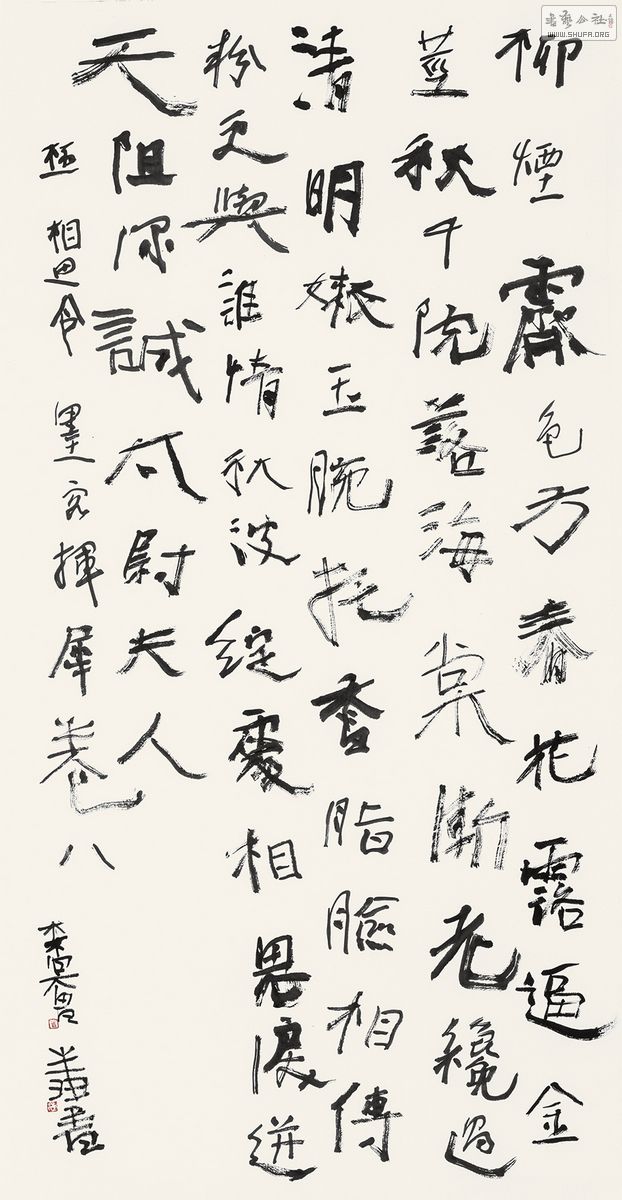 柳煙霽色方春花露逼金
莖秋千院落海棠漸老纔過
清明嫩玉腕托香脂臉相傅
粉更與誰情秋波綻處相思淚迸
天阻深誠太尉夫人
極相思令墨客揮犀卷八
書藝公社
WWW.SHUFA.ORG